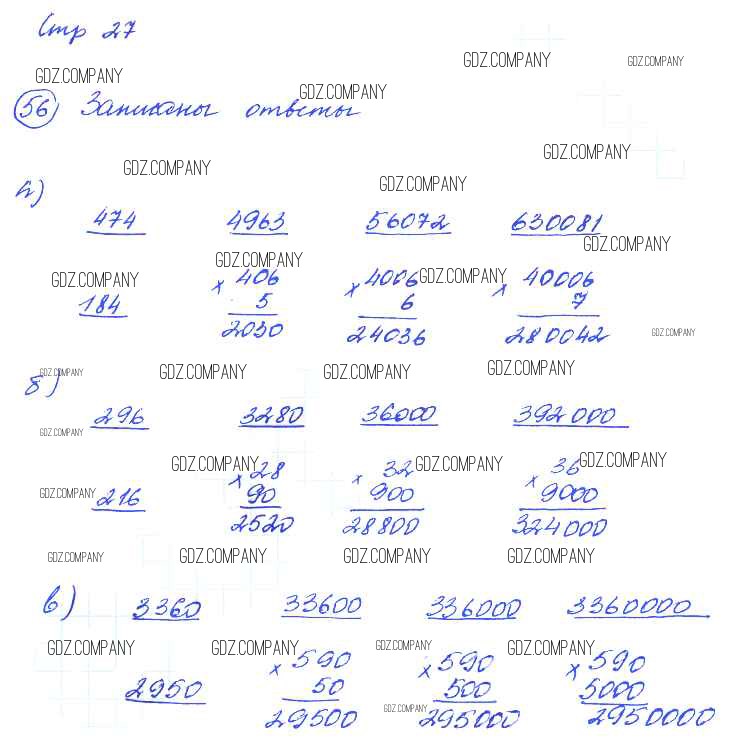 Стр 27
GDZ.COMPANY GDZ.COMPANY GDZ.COMPANY
GDZ.COMPANY
56 Записаны ответы
GDZ.COMPANY GDZ.COMPANY
GDZ.COMPANY
а)
474 4963 56072 630081
GDZ.COMPANY
GDZ.COMPANY GDZ.COMPANY GDZ.COMPANY
184 × 406 × 4006 × 40006
5 6 7
2030 24036 280042
GDZ.COMPANY
GDZ.COMPANY GDZ.COMPANY GDZ.COMPANY GDZ.COMPANY
б)
296 3280 36000 392000
GDZ.COMPANY
GDZ.COMPANY GDZ.COMPANY GDZ.COMPANY
× 28 × 32 × 36
GDZ.COMPANY
216 90 900 9000
2520 28800 324000
GDZ.COMPANY GDZ.COMPANY GDZ.COMPANY GDZ.COMPANY
в) 3360 33600 336000 3360000
GDZ.COMPANY GDZ.COMPANY GDZ.COMPANY GDZ.COMPANY
× 590 × 590 × 590
2950 50 500 5000
GDZ.COMPANY
29500 295000 2950000